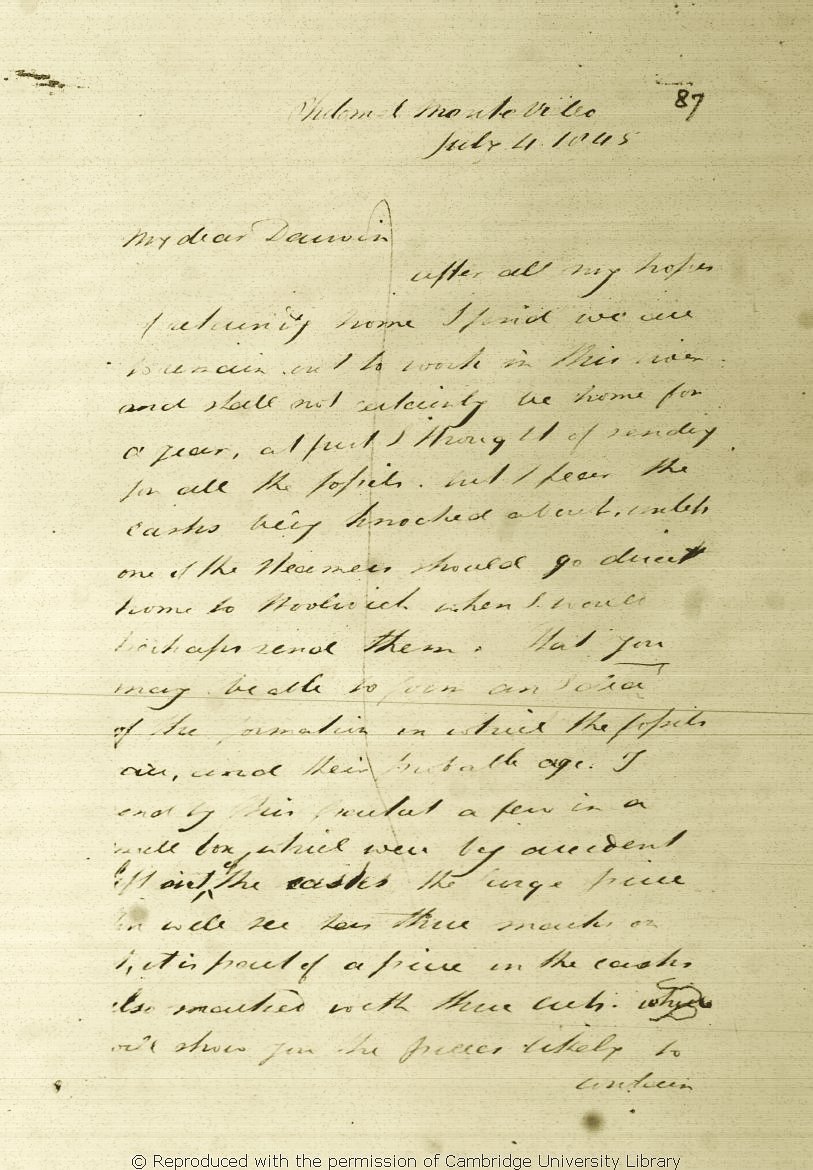 87
Philomel Monte Video
July 4. 1845
My dear Darwin
after all my hopes
of returning home I find we are
to remain out to work in this river
and shall not certainly be home for
a year, at first I thought of sending
for all the fossils. but I fear the
casks being knocked about, unless
one of the steamers should go direct
home to Woolwich when I would
perhaps send them. That you
may be able to form an Idea
of the formation in which the fossils
are, and their probable age. I
send by this packet a few in a
small box, which were by accident
left out of the casks the large piece
you will see has three marks on
it, it is part of a piece in the casks
also marked with three cuts. which
will show you the pieces likely to
contain
© Reproduced with the permission of Cambridge University Library